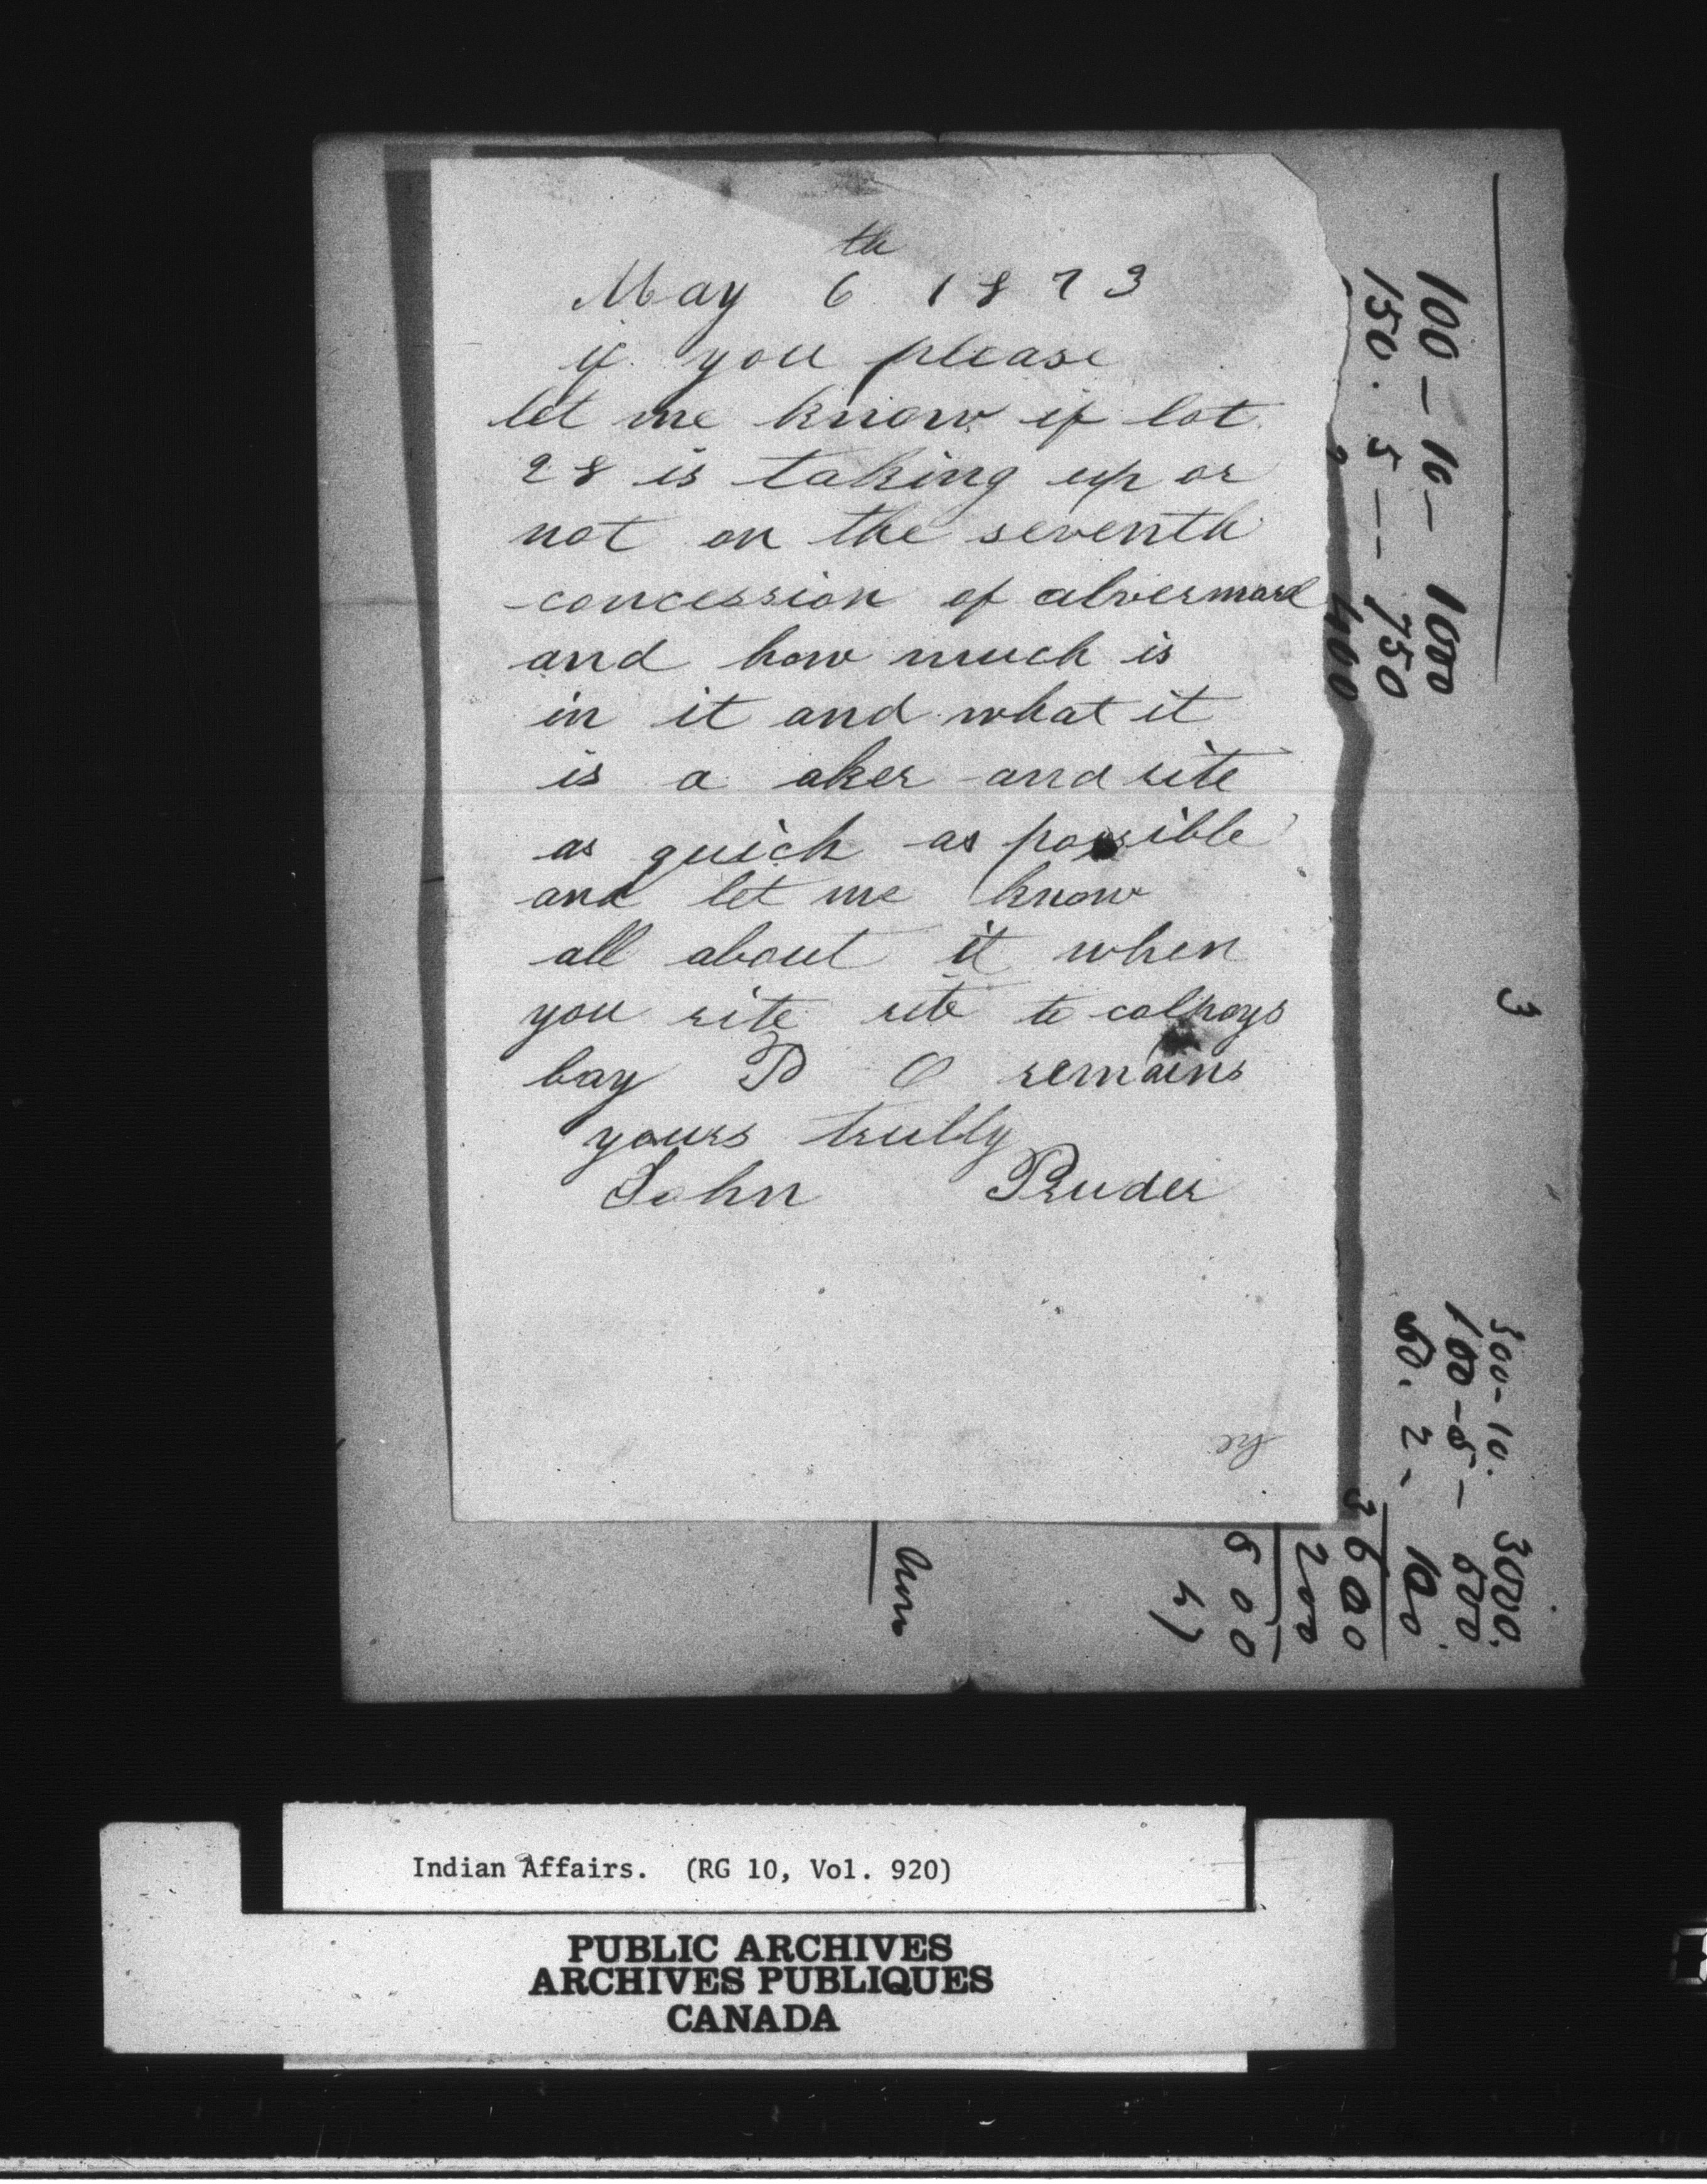 May 6th 1873
if you please
let me know if lot
28 is taking up or
not on the seventh
concession of alvermarl
and how much is
in it and what it
is a aker and rite
as quick as possible
and let me know
all about it when
you rite rite to colpoys
bay P O remains
yours trully
John Pruder
100 - 10 - 1000
150. 5 - - 750
400
3
300 - 10. 3000.
100 - 5 - 500
50. 2 - 100
3600
200
500
Indian Affairs. (RG 10, Vol. 920)
PUBLIC ARCHIVES
ARCHIVES PUBLIQUES
CANADA